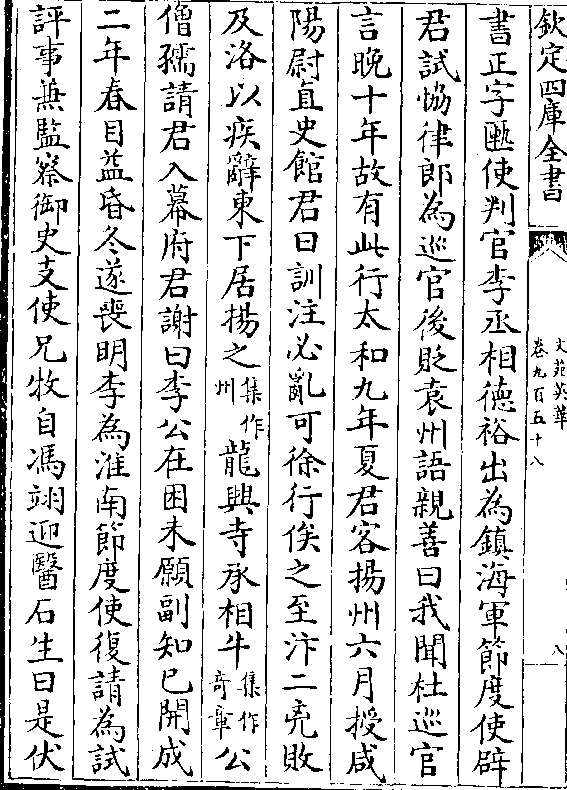 欽定四庫全書
文苑英華
卷九百五十八
八
書正字匭使判官李丞相德裕出為鎮海軍節度使辟
君試恊律郎為巡官後貶袁州語親善曰我聞杜巡官
言晚十年故有此行太和九年夏君客揚州六月授咸
陽尉直史館君曰訓注必亂可徐行俟之至汴二兇敗
及洛以疾辭東下居揚之集作州龍興寺承相牛集作奇章公
僧孺請君入幕府君謝曰李公在困未願副知己開成
二年春目益昏冬遂喪明李為淮南節度使復請為試
評事兼監察御史支使兄牧自馮翊迎醫石生曰是伏